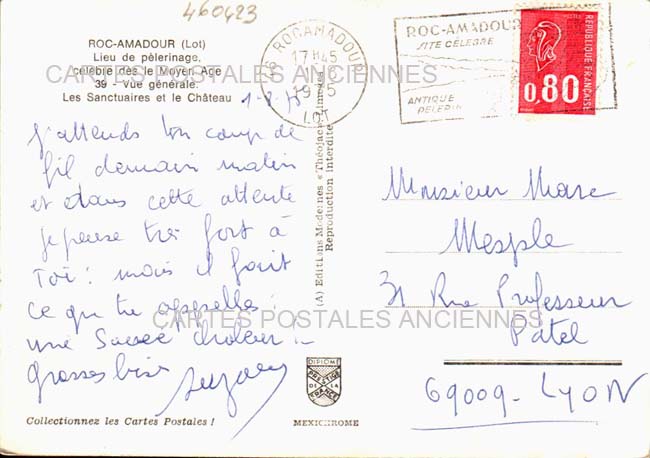 460423
ROC-AMADOUR (Lot)
Lieu de pèlerinage,
célèbre dès le Moyen Age
39 - Vue générale.
Les Sanctuaires et le Château
1-8-75
J'attends ton coup de
fil demain matin
et dans cette attente
je pense très fort à
Toi : mais il fait
ce que tu appelles :
une Sacrée chaleur
Grosses bises
CARTES POSTALES ANCIENNES
CARTES POSTALES ANCIENNES
ROCAMADOUR
17 H 45
LOT
ROC-AMADOUR
SITE CÉLÈBRE
ANTIQUE
PÈLERIN
POSTES
REPUBLIQUE FRANÇAISE
0,80
(A) Editions Modernes « Théojac » Limoges
Reproduction interdite
Monsieur Marc
Mesple
31 Rue Professeur
Patel
69009 - LYON
DIPLOME
PRESTIGE
DE LA
FRANCE
Collectionnez les Cartes Postales !
MEXICHROME